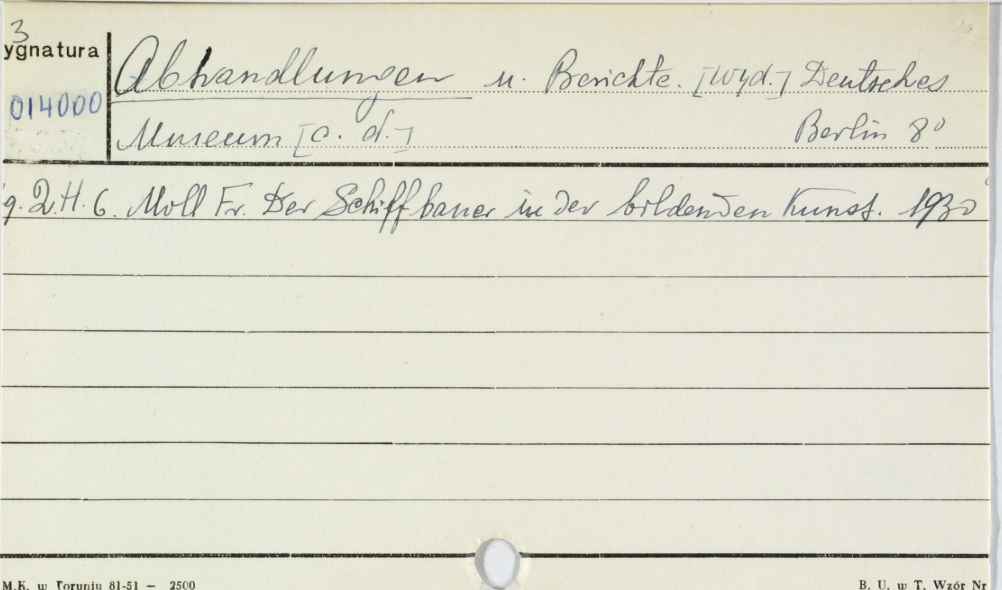 3
ygnatura
014000
Abhandlungen u. Berichte. [Wyd.] Deutsches
Museum [c. d.] Berlin 8°
g. 2. H. 6. Moll Fr. Der Schiffbauer in der bildenden Kunst. 1930
M.K. w Toruniu 81-51 — 2500
B. U. w T. Wzór Nr